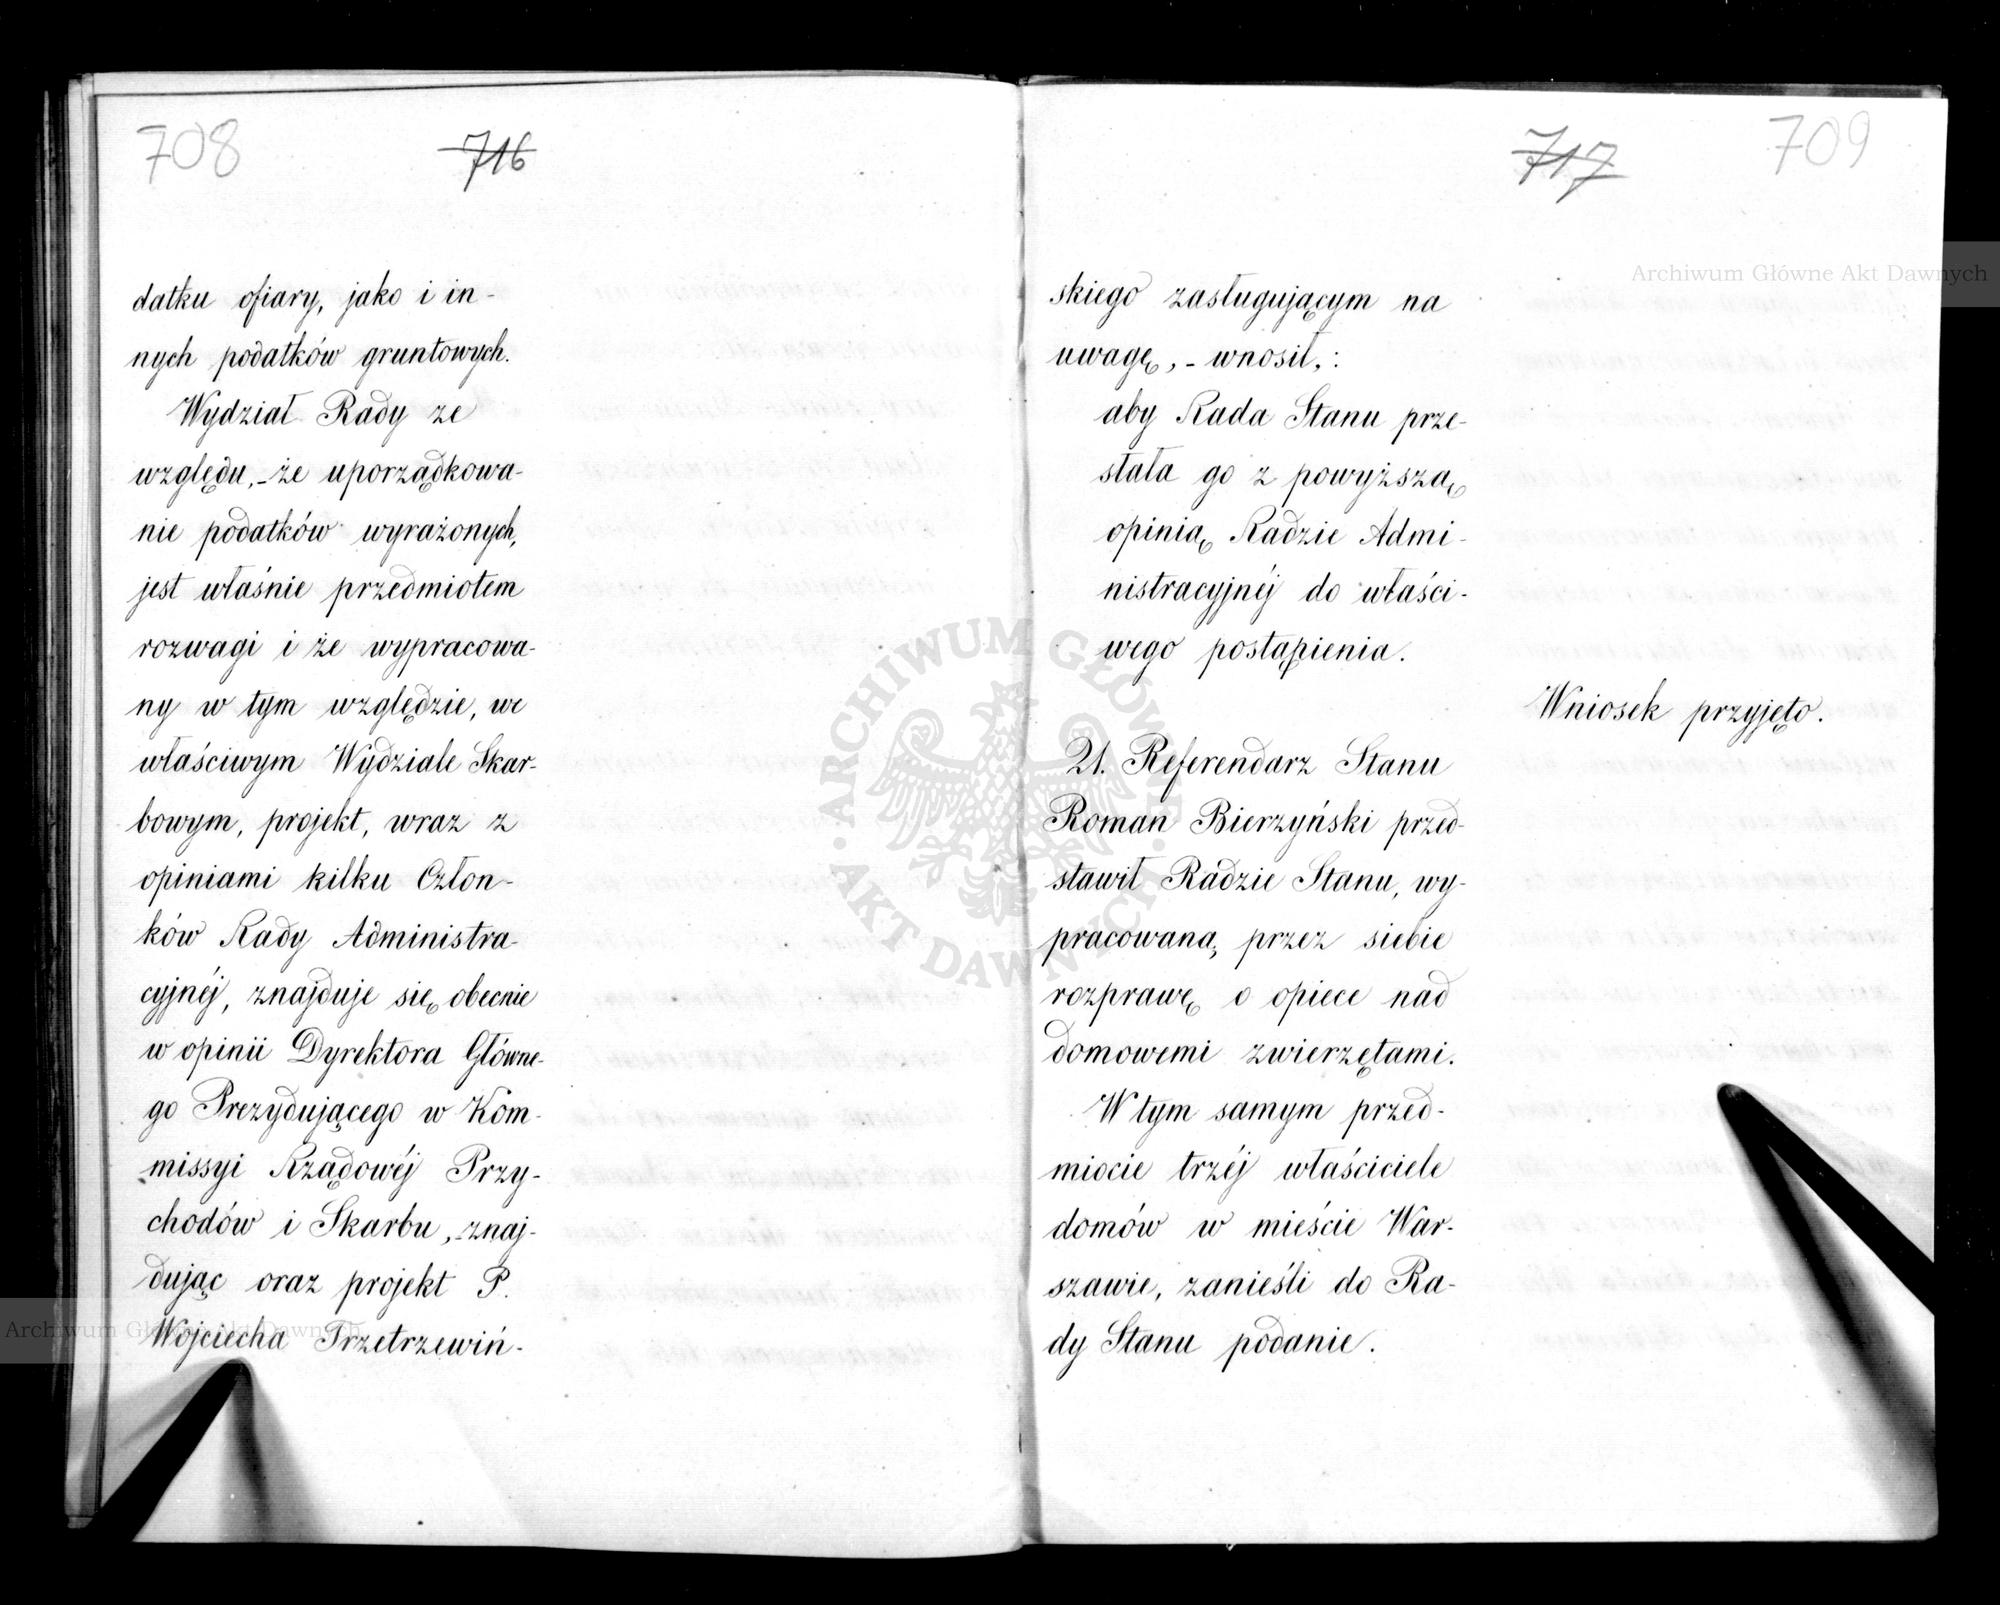 708
716
datku ofiary, jako i in-
nych podatków gruntowych.
Wydział Rady ze
względu, - że uporządkowa-
nie podatków wyrażonych,
jest właśnie przedmiotem
rozwagi i że wypracowa-
ny w tym względzie, we
właściwym Wydziale Skar-
bowym, projekt, wraz z
opiniami kilku Człon-
ków Rady Administra-
cyjnéj, znajduje się obecnie
w opinii Dyrektora Główne-
go Prezydującego w Kom-
missyi Rządowéj Przy-
chodów i Skarbu, - znaj-
dując oraz projekt P.
Wojciecha Przetrzewiń-
717
709
skiego zasługującym na
uwagę, - wnosił, :
aby Rada Stanu prze-
stała go z powyższą
opinią Radzie Admi-
nistracyjnéj do właści-
wego postąpienia.
Wniosek przyjęto.
21. Referendarz Stanu
Roman Bierzyński przed-
stawił Radzie Stanu, wy-
pracowaną przez siebie
rozprawę o opiece nad
domowemi zwierzętami.
W tym samym przed-
miocie trzéj właściciele
domów w mieście War-
szawie, zanieśli do Ra-
dy Stanu podanie.
Archiwum Główne Akt Dawnych
ARCHIWUM GŁÓWNE · AKT DAWNYCH ·
Archiwum Główne Akt Dawnych